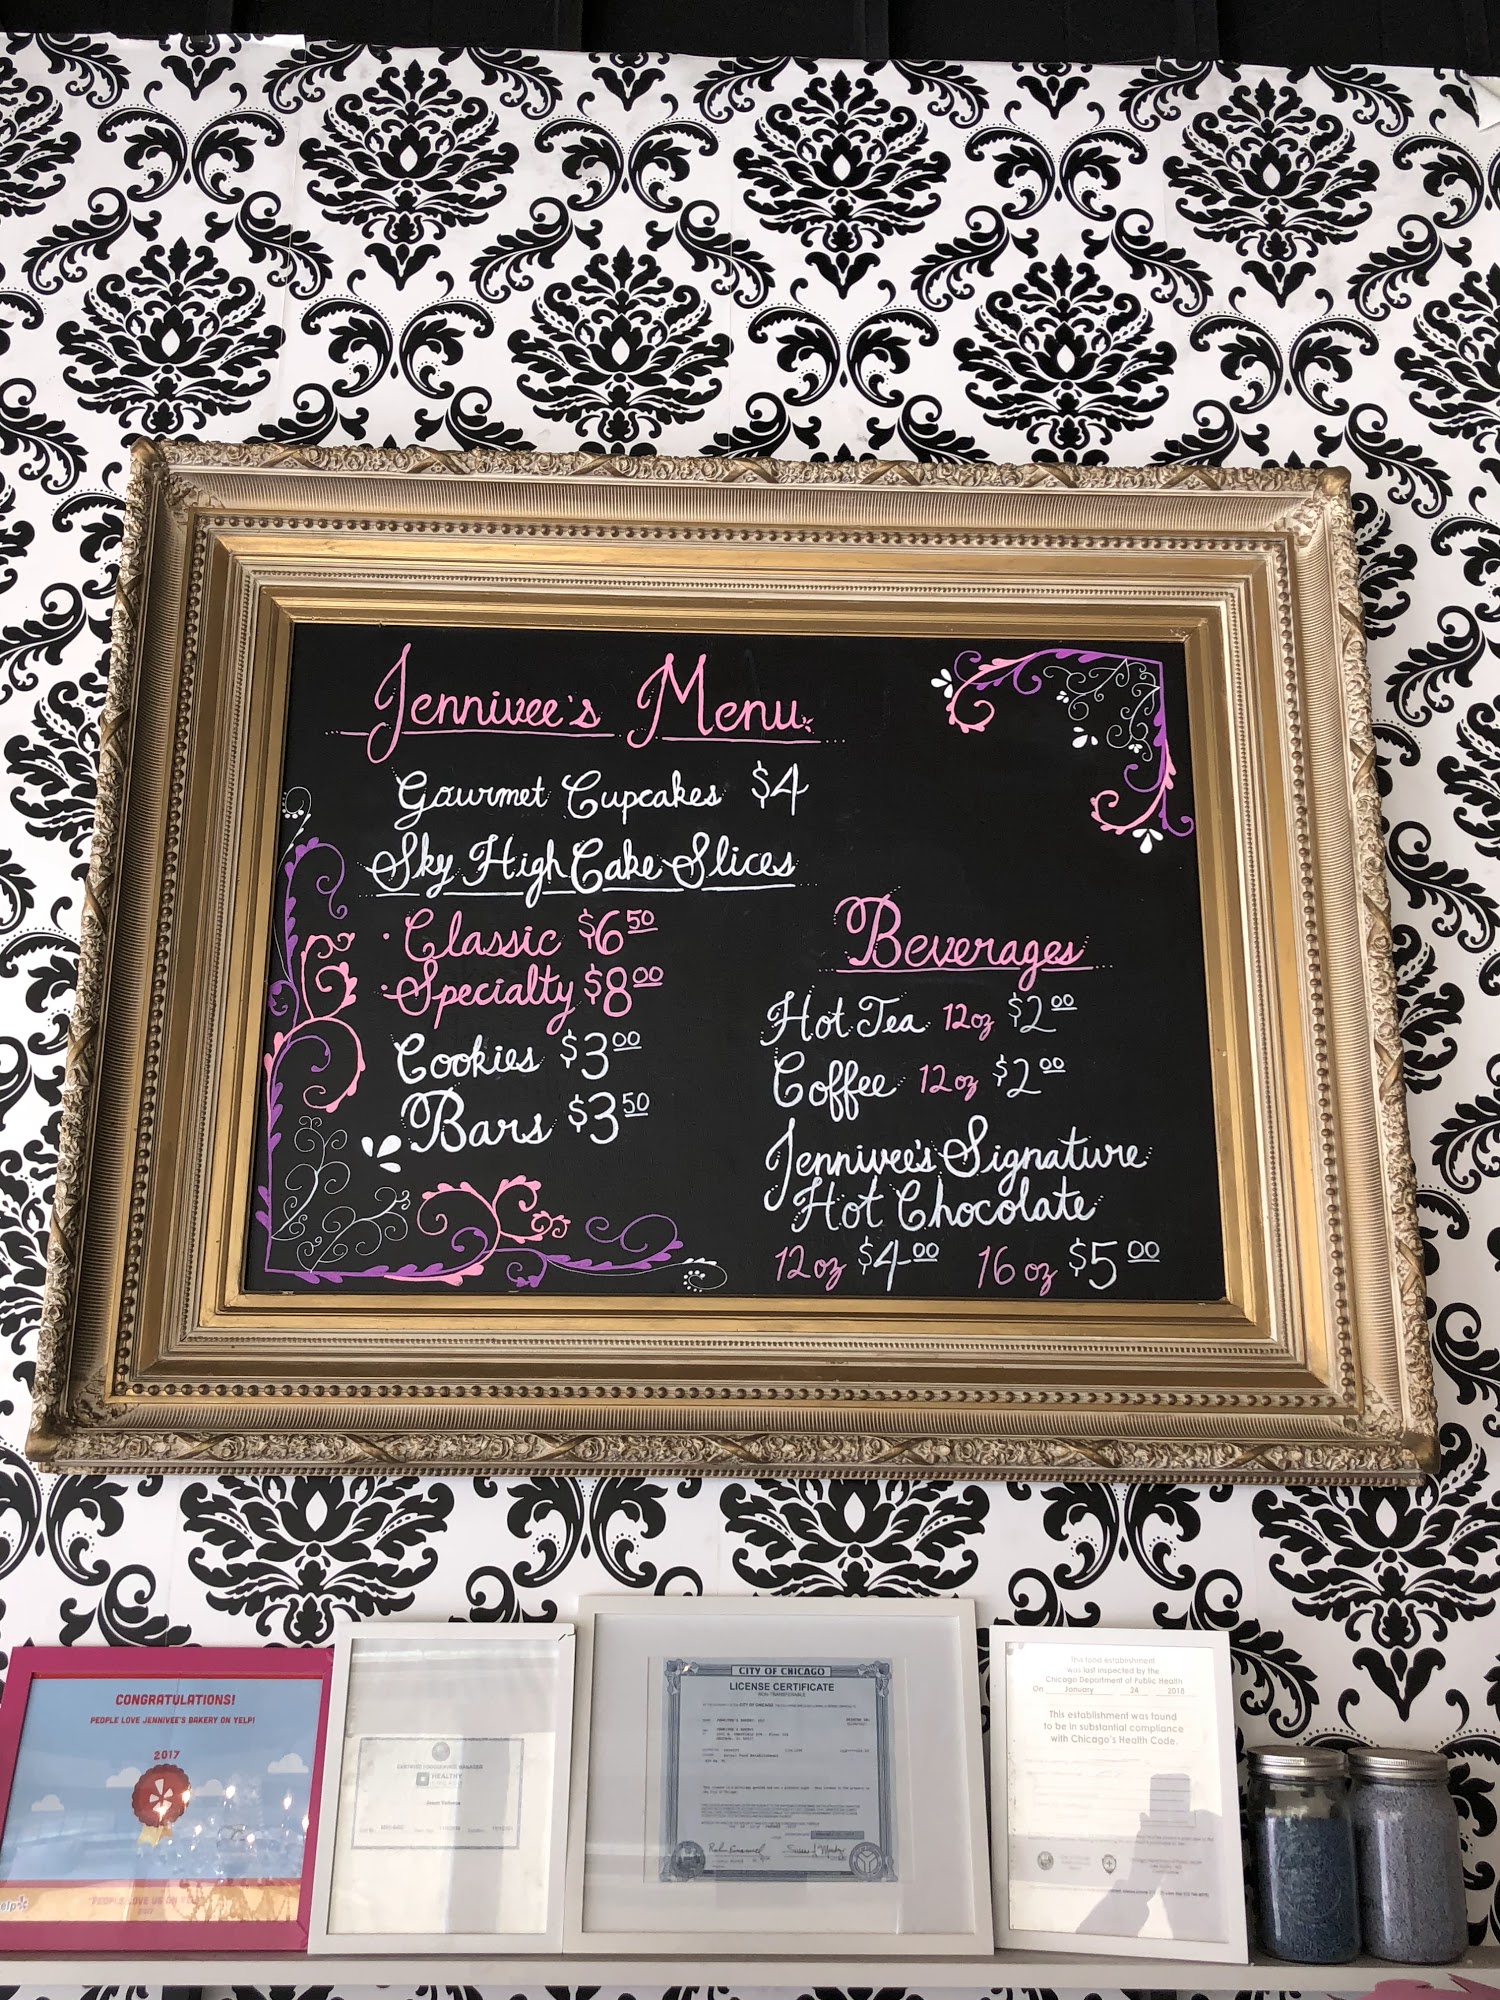 Jennivee's Menu
Gourmet Cupcakes $4
Sky High Cake Slices
• Classic $6.50
• Specialty $8.00
Cookies $3.00
Bars $3.50
Beverages
Hot Tea 12oz $2.00
Coffee 12oz $2.00
Jennivee's Signature
Hot Chocolate
12oz $4.00 16 oz $5.00
CONGRATULATIONS!
PEOPLE LOVE JENNIVEE'S BAKERY ON YELP!
2017
"PEOPLE LOVE US ON
yelp
HEALTHY
CITY OF CHICAGO
LICENSE CERTIFICATE
NON-TRANSFERABLE
This food establishment
was last inspected by the
Chicago Department of Public Health
On January 24 2018
This establishment was found
to be in substantial compliance
with Chicago's Health Code.